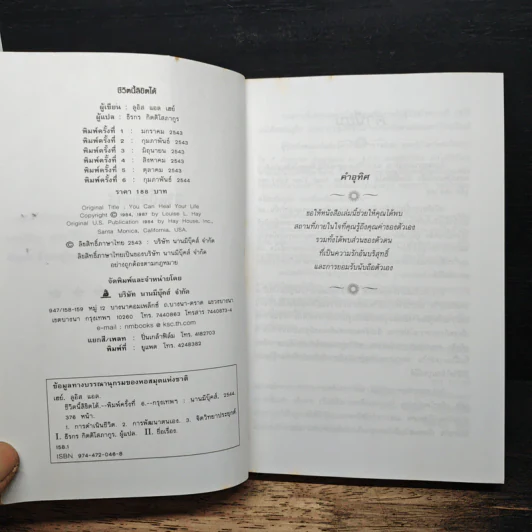 ชีวิตนี้ลิขิตได้
ผู้เขียน : ลูอิส แอล เฮย์
ผู้แปล : ธีรกร กิตติโสภากูร
พิมพ์ครั้งที่ 1 : มกราคม 2543
พิมพ์ครั้งที่ 2 : กุมภาพันธ์ 2543
พิมพ์ครั้งที่ 3 : มิถุนายน 2543
พิมพ์ครั้งที่ 4 : สิงหาคม 2543
พิมพ์ครั้งที่ 5 : ตุลาคม 2543
พิมพ์ครั้งที่ 6 : กุมภาพันธ์ 2544
ราคา 168 บาท
Original Title : You Can Heal Your Life
Copyright © 1984, 1987 by Louise L. Hay
Original U.S. Publication 1984 by Hay House, Inc.,
Santa Monica, California, USA.
© ลิขสิทธิ์ภาษาไทย 2543 : บริษัท นานมีบุ๊คส์ จำกัด
ลิขสิทธิ์ภาษาไทยเป็นของบริษัท นานมีบุ๊คส์ จำกัด
อย่างถูกต้องตามกฎหมาย
จัดพิมพ์และจำหน่ายโดย
บริษัท นานมีบุ๊คส์ จำกัด
947/158-159 หมู่ 12 บางนาคอมเพล็กซ์ ถ.บางนา-ตราด แขวงบางนา
เขตบางนา กรุงเทพฯ 10260 โทร. 7440863 โทรสาร 7440873-4
e-mail : nmbooks @ ksc.th.com
แยกสี/เพลท : ปิ่นเกล้าฟิล์ม โทร. 4182703
พิมพ์ที่ : ยูแพด โทร. 4248382
ข้อมูลทางบรรณานุกรมของหอสมุดแห่งชาติ
เฮย์, ลูอิส แอล.
ชีวิตนี้ลิขิตได้.--พิมพ์ครั้งที่ 6.--กรุงเทพฯ : นานมีบุ๊คส์, 2544.
378 หน้า.
1. การดำเนินชีวิต. 2. การพัฒนาตนเอง. 3. จิตวิทยาประยุกต์
I. ธีรกร กิตติโสภากูร, ผู้แปล. II. ชื่อเรื่อง.
158.1
ISBN 974-472-046-6
คำอุทิศ
ขอให้หนังสือเล่มนี้ช่วยให้คุณได้พบ
สถานที่ภายในใจที่คุณรู้ถึงคุณค่าของตัวเอง
รวมทั้งได้พบส่วนของตัวตน
ที่เป็นความรักอันบริสุทธิ์
และการยอมรับนับถือตัวเอง